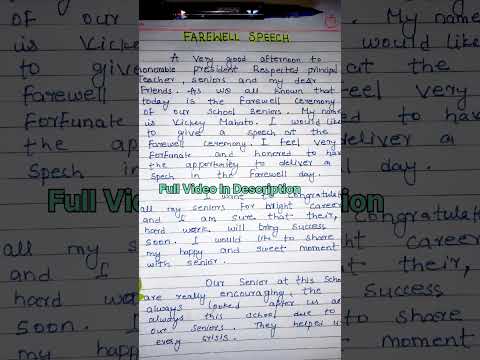 FAREWELL SPEECH
A very good afternoon to
honorable president Respected principal
Teacher, seniors and my dear
Friends. As we all known that
today is the Farewell ceremony
of our school seniors. My name
is Vickey Mahato. I would like
to give a speech at the
farewell ceremony. I feel very
Forfunate and honored to have
the apportunity to deliver a
Spech in the Farewell day.
Full Video In Description
I want congratulate
all my seniors for bright career
and I am sure that their,
hard work will bring success
soon. I would lik to share
my happy and sweet moment
with senior.
Our Senior at this School
are really encouraging, the
always looked after us and
always this school due to
our seniors. They helped us
every crisis.